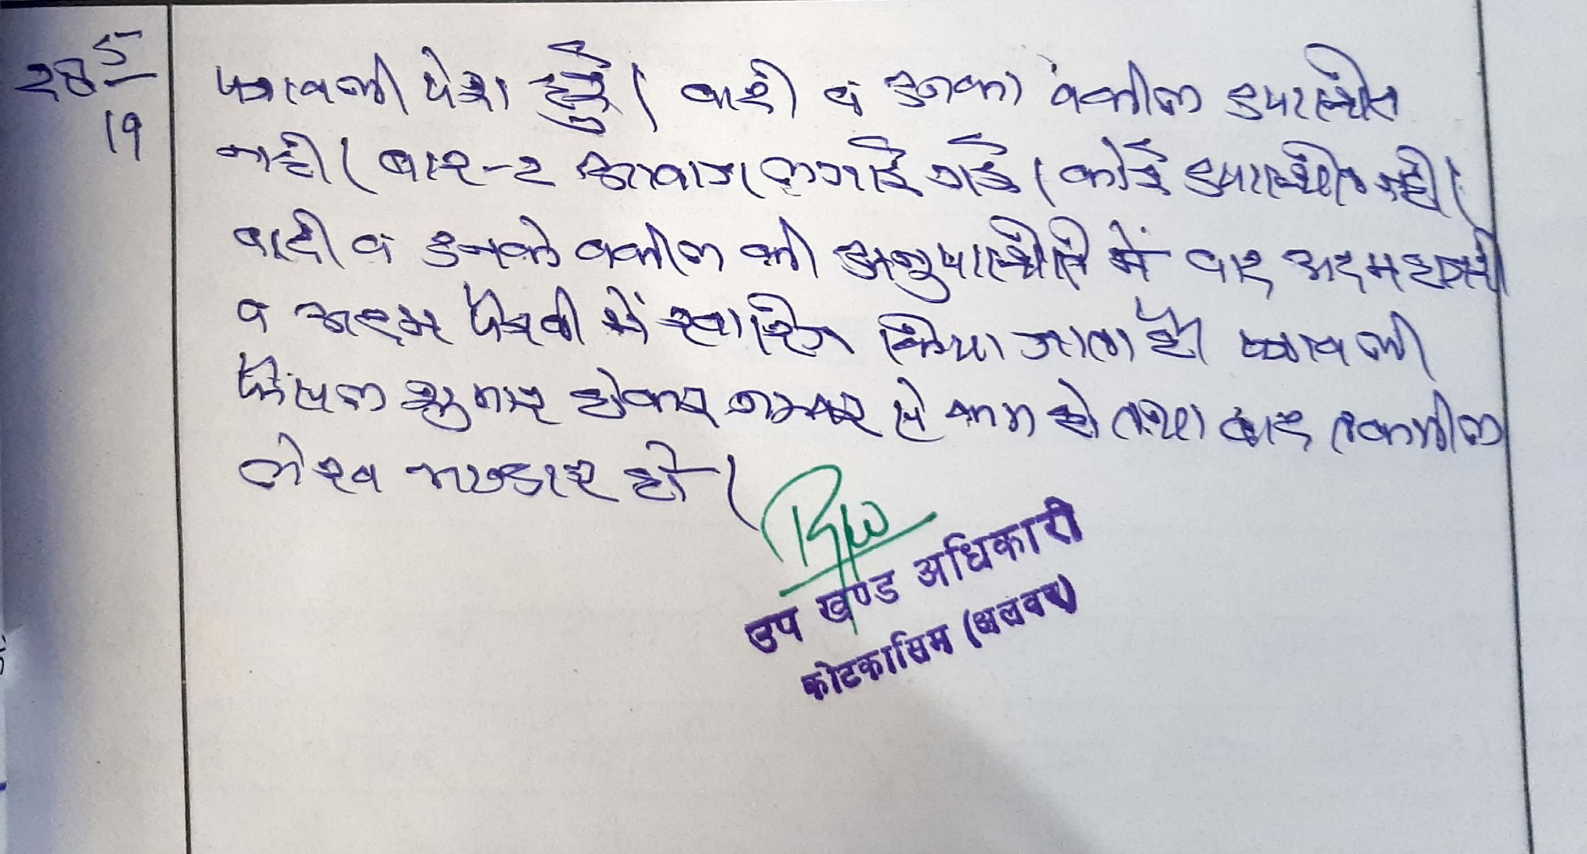 28 5/19
पत्रावली पेश हुई। वादी व उनका वकील उपस्थित
नही। बार-2 आवाज लगाई गई। कोई उपस्थित नही।
वादी व उनके वकील की अनुपस्थिति में वाद अदम हाजरी
व अदम पैरवी में खारिज किया जाता है। पत्रावली
फैसल शुमार होकर नम्बर से कम हो तथा बाद तकमील
लेख भण्डार हो।
उप खण्ड अधिकारी
कोटकासिम (अलवर)